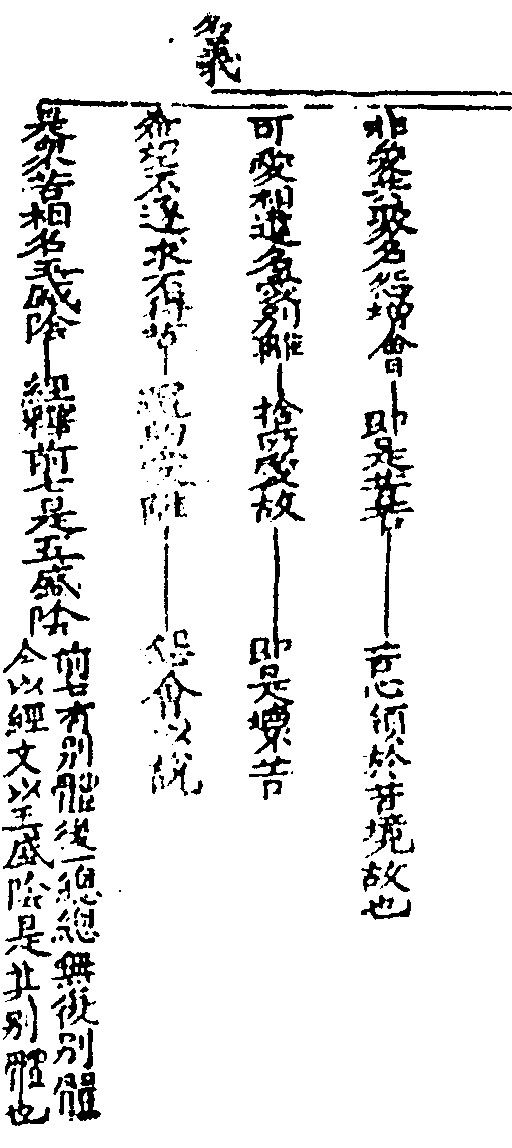 名義
非愛共聚名怨憎會 即是苦苦 苦心領於苦境故也
可愛相違名愛別離 捨所愛故 即是壞苦
希望不遂求不得苦 愛離 怨會以說
是眾苦相名五盛陰 經釋前七是五盛陰 前七有別體後一總總無後別體
今以經文以五盛陰是其別體也